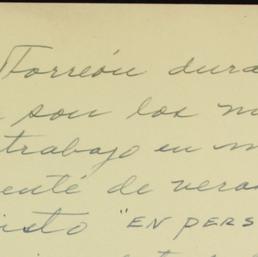 Torreón dura
son los
trabajo en m
enté de vera
isto "EN PERS